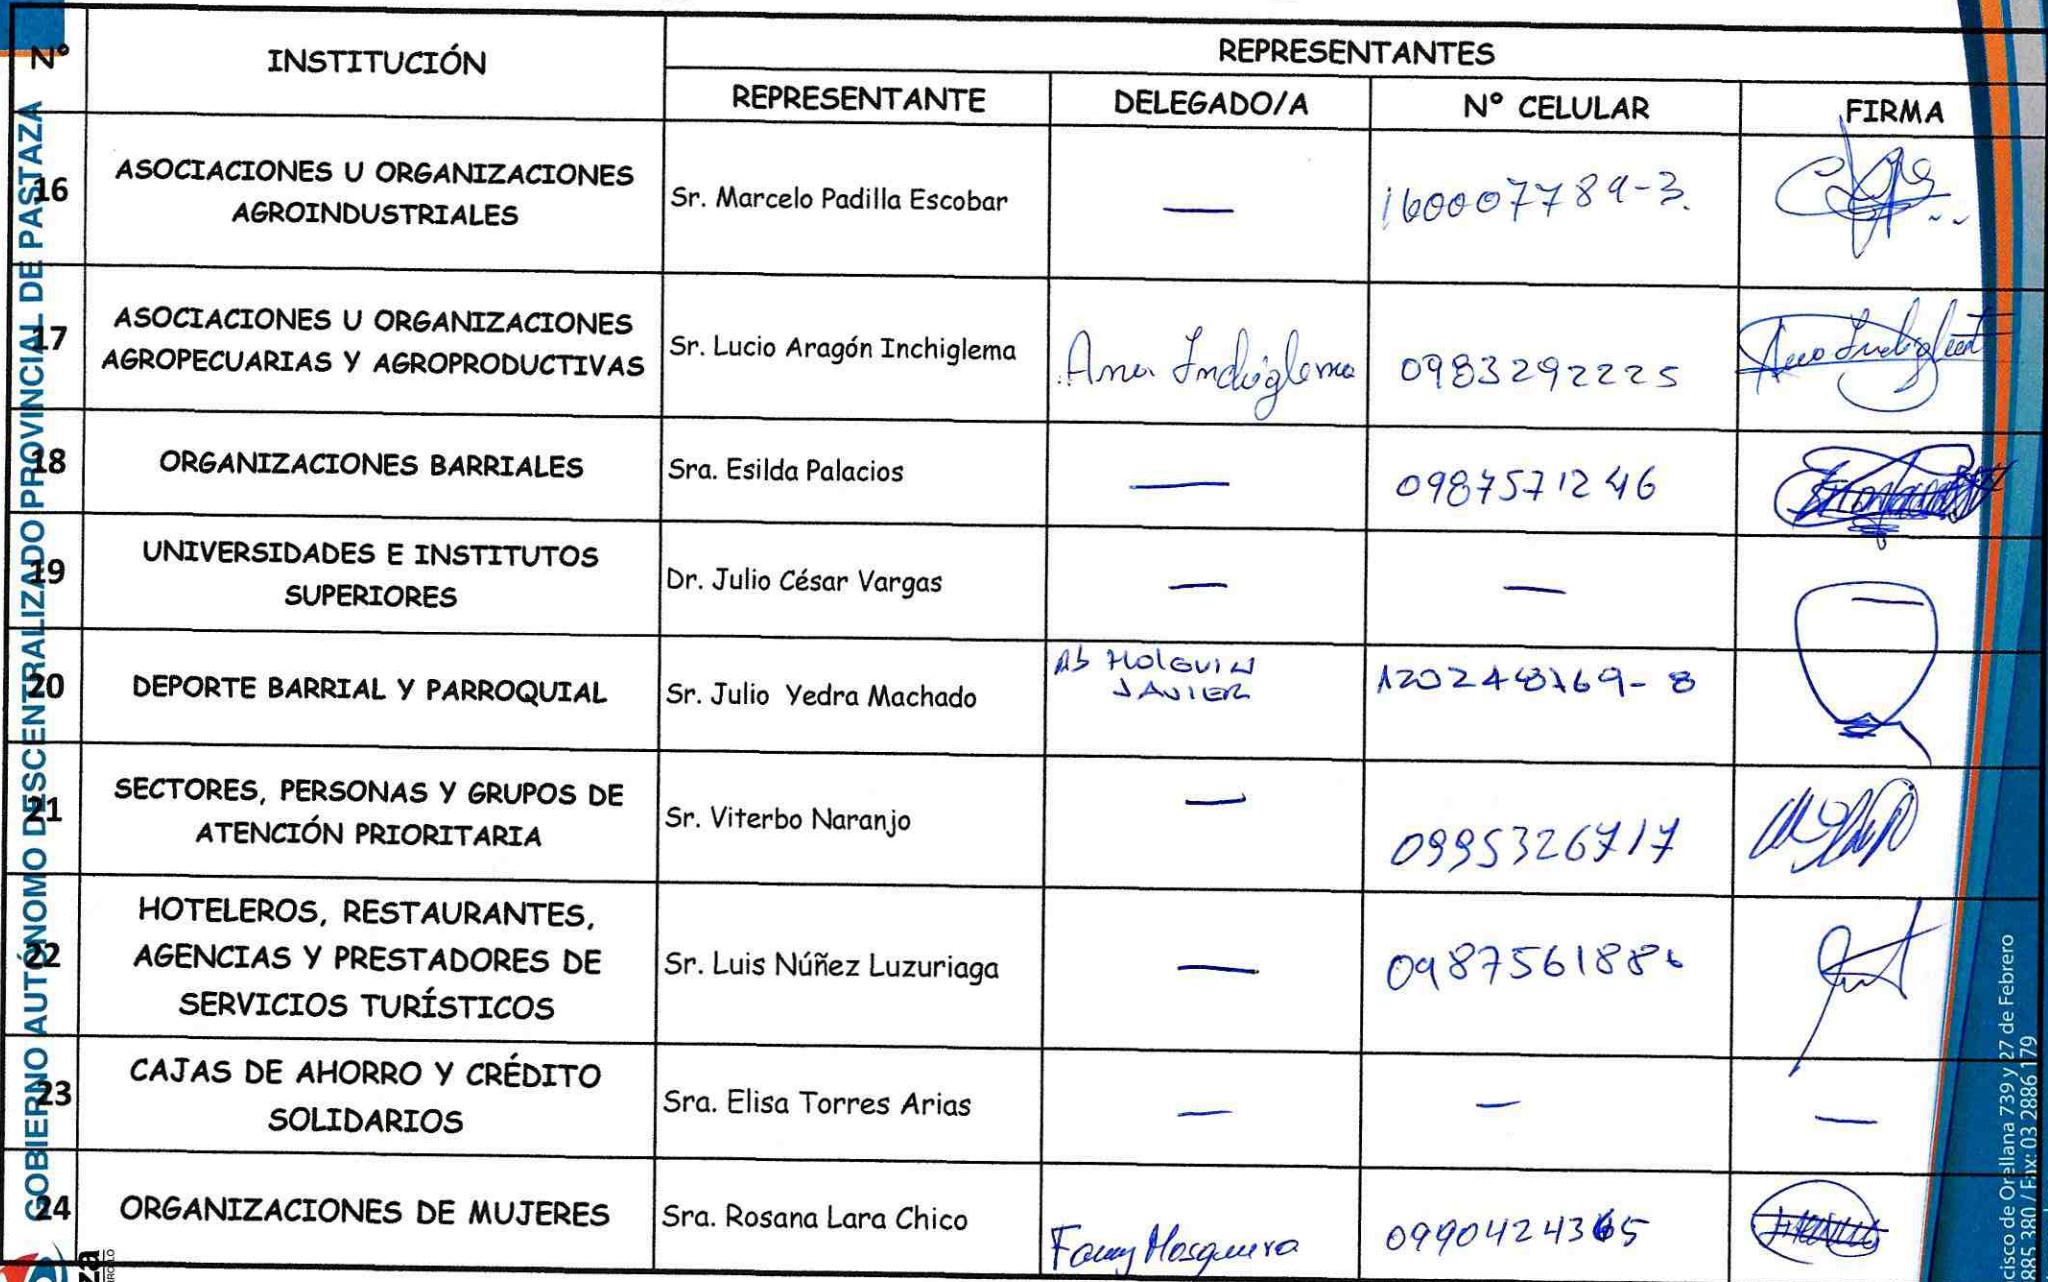 Nº INSTITUCIÓN REPRESENTANTES
REPRESENTANTE DELEGADO/A Nº CELULAR FIRMA
16 ASOCIACIONES U ORGANIZACIONES AGROINDUSTRIALES Sr. Marcelo Padilla Escobar — 160007789-3.
17 ASOCIACIONES U ORGANIZACIONES AGROPECUARIAS Y AGROPRODUCTIVAS Sr. Lucio Aragón Inchiglema Ana Inchiglema 0983292225
18 ORGANIZACIONES BARRIALES Sra. Esilda Palacios — 0987571246
19 UNIVERSIDADES E INSTITUTOS SUPERIORES Dr. Julio César Vargas — — —
20 DEPORTE BARRIAL Y PARROQUIAL Sr. Julio Yedra Machado Ab HOLGUIN JAVIER 120248769-8
21 SECTORES, PERSONAS Y GRUPOS DE ATENCIÓN PRIORITARIA Sr. Viterbo Naranjo — 0995326717
22 HOTELEROS, RESTAURANTES, AGENCIAS Y PRESTADORES DE SERVICIOS TURÍSTICOS Sr. Luis Núñez Luzuriaga — 0987561886
23 CAJAS DE AHORRO Y CRÉDITO SOLIDARIOS Sra. Elisa Torres Arias — — —
24 ORGANIZACIONES DE MUJERES Sra. Rosana Lara Chico Fanny Mosquera 0990424365
GOBIERNO AUTÓNOMO DESCENTRALIZADO PROVINCIAL DE PASTAZA
za
cisco de Orellana 739 y 27 de Febrero
885 380 / Fax: 03 2886 179